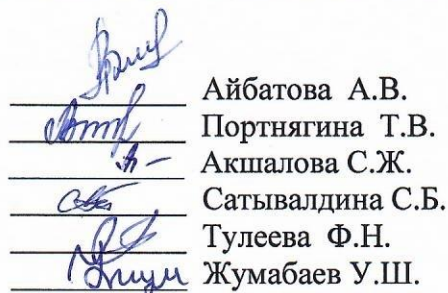 Айбатова А.В.
Портнягина Т.В.
Акшалова С.Ж.
Сатывалдина С.Б.
Тулеева Ф.Н.
Жумабаев У.Ш.